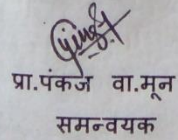 प्रा.पंकज वा.मून
समन्वयक